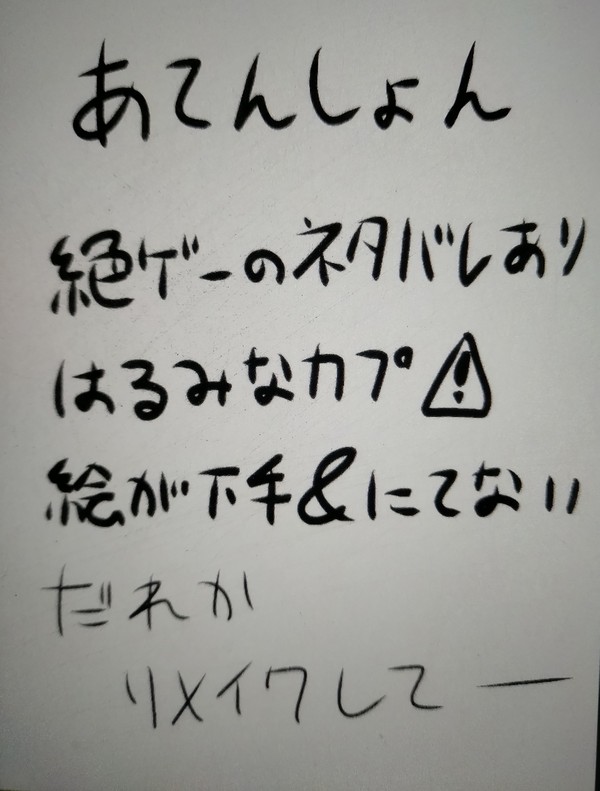 あてんしょん
絶ゲーのネタバレあり
はるみなカプ⚠
絵が下手&にてない
だれか
リメイクしてー